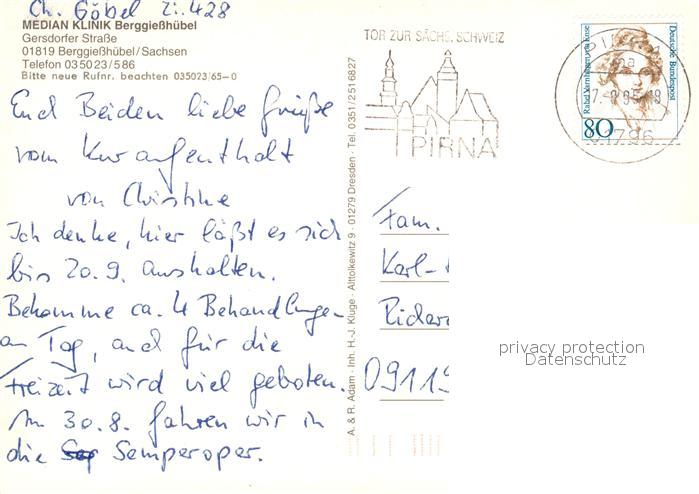 Ch. Göbel Zi. 428
MEDIAN KLINIK Berggießhübel
Gersdorfer Straße
01819 Berggießhübel/Sachsen
Telefon 035023/586
Bitte neue Rufnr. beachten 035023/65-0
Euch Beiden liebe Grüße
vom Kuraufenthalt
von Christine
Ich denke, hier läßt es sich
bis 20.9. aushalten.
Bekomme ca. 4 Behandlungen
am Tag, und für die
Freizeit wird viel geboten.
Am 30.8. fahren wir in
die Semperoper.
A. & R. Adam - Inh. H.-J. Kluge - Alttolkewitz 9 - 01279 Dresden - Tel. 0351/2516827
TOR ZUR SÄCHS. SCHWEIZ
PIRNA
Rahel Varnhagen von Ense
Deutsche Bundespost
80
PIRNA
01796
Fam.
Karl-
Richar
0911
privacy protection
Datenschutz